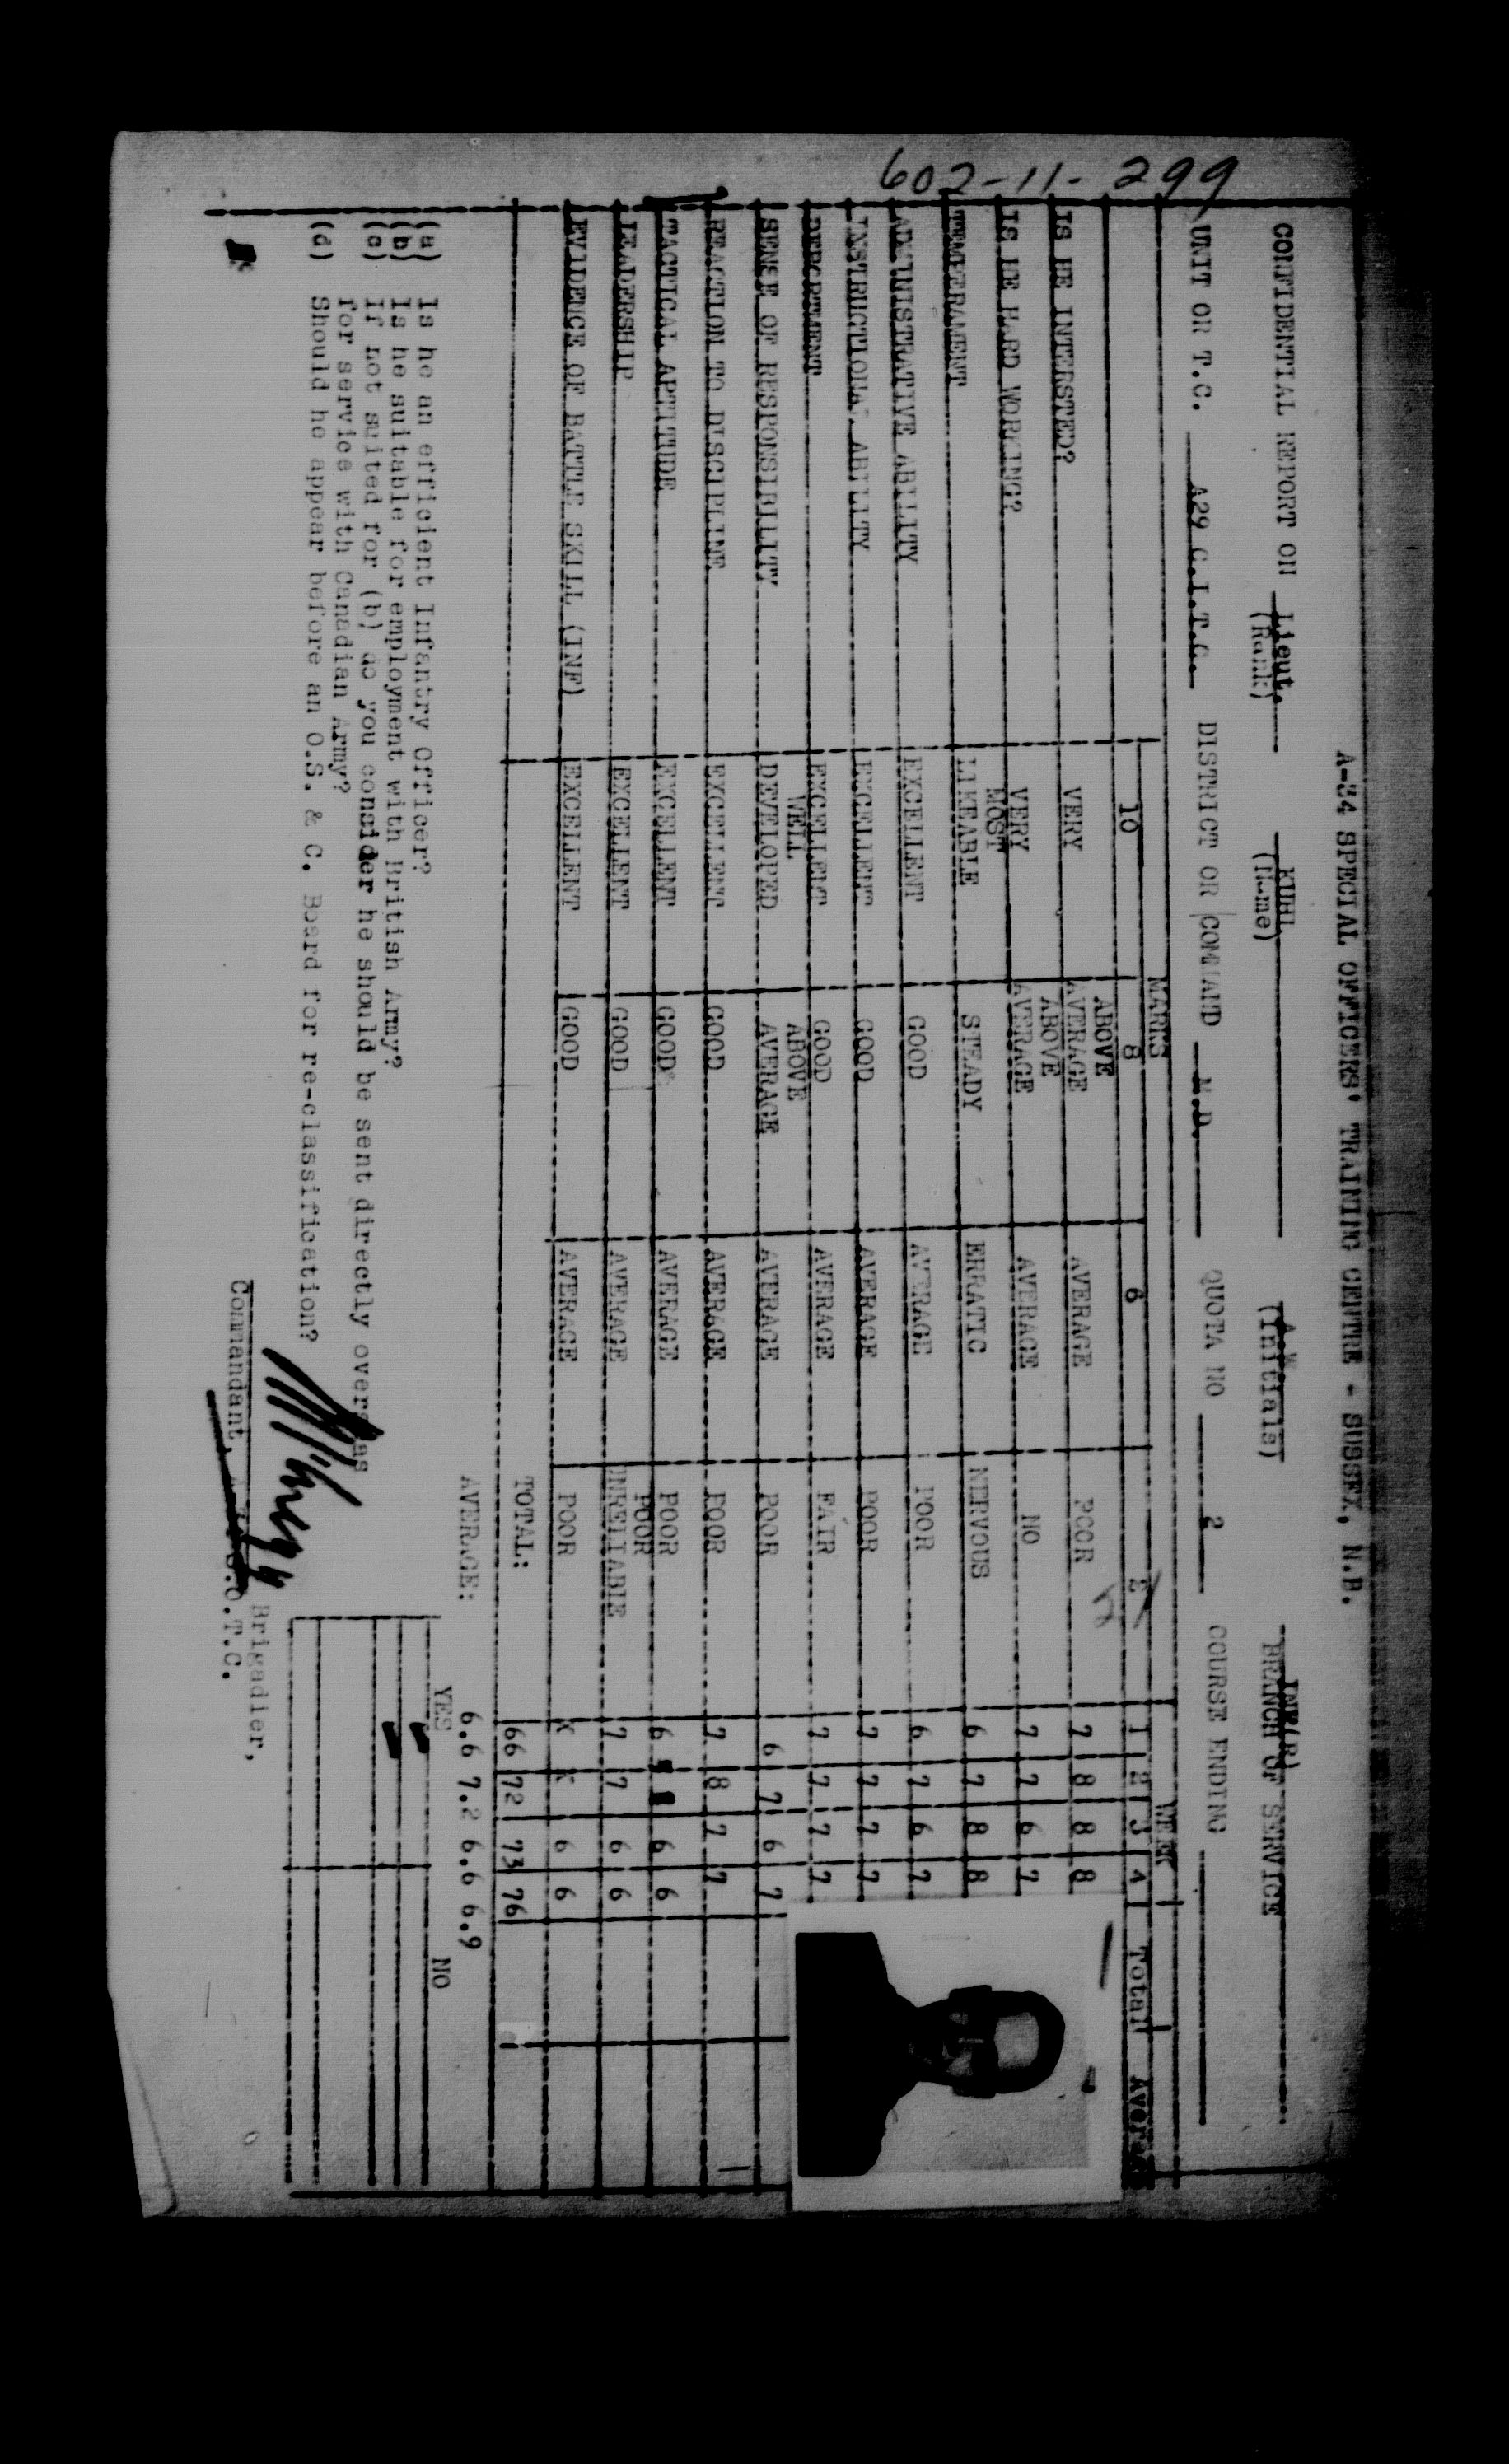 602-11-299
A-34 SPECIAL OFFICERS' TRAINING CENTRE - SUSSEX, N.B.
CONFIDENTIAL REPORT ON Lieut. KUHL A.W. INF(R)
(Rank) (Name) (Initials) BRANCH OF SERVICE
UNIT OR T.C. A29 C.I.T.C. DISTRICT OR COMMAND M.D. QUOTA NO 2 COURSE ENDING
MARKS WEEK
10 8 6 2 1 2 3 4 Total Average
IS HE INTERSTED? VERY ABOVE AVERAGE AVERAGE POOR 7 8 8 8
IS HE HARD WORKING? VERY ABOVE AVERAGE AVERAGE NO 7 7 6 7
TEMPERAMENT MOST LIKEABLE STEADY ERRATIC NERVOUS 6 7 8 8
ADMINISTRATIVE ABILITY EXCELLENT GOOD AVERAGE POOR 6 7 6 7
INSTRUCTIONAL ABILITY EXCELLENT GOOD AVERAGE POOR 7 7 7 7
DEPORTMENT EXCELLENT GOOD AVERAGE FAIR 7 7 7 7
SENSE OF RESPONSIBILITY WELL DEVELOPED ABOVE AVERAGE AVERAGE POOR 6 7 6 7
REACTION TO DISCIPLINE EXCELLENT GOOD AVERAGE POOR 7 8 7 7
TACTICAL APTITUDE EXCELLENT GOOD AVERAGE POOR 6 6 6
LEADERSHIP EXCELLENT GOOD AVERAGE POOR UNRELIABLE 7 7 6 6
EVIDENCE OF BATTLE SKILL (INF) EXCELLENT GOOD AVERAGE POOR x x 6 6
TOTAL: 66 72 73 76
AVERAGE: 6.6 7.2 6.6 6.9
YES NO
(a) Is he an efficient Infantry Officer?
(b) Is he suitable for employment with British Army?
(c) If not suited for (b) do you consider he should be sent directly overseas
for service with Canadian Army?
(d) Should he appear before an O.S. & C. Board for re-classification?
Brigadier,
Commandant, O.T.C.